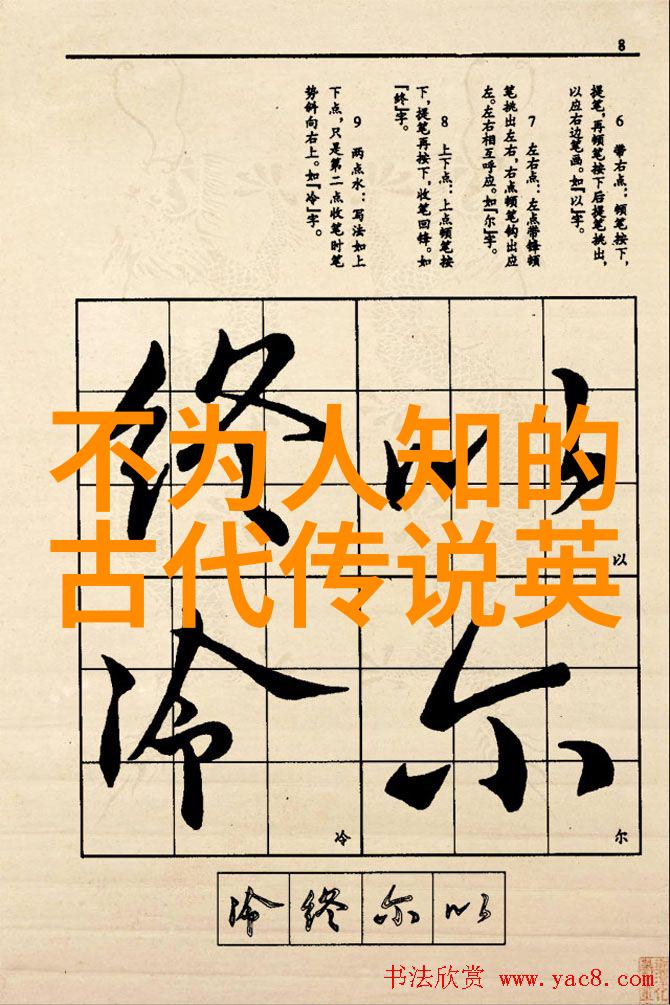 8
6 带右点：顿笔按下，
提笔，再顿笔按下后提笔挑出，
以应右边笔画。如『以』字。
7 左右点：左点带锋顿
笔挑出左右，右点顿笔钩出应
左。左右相互呼应。如『尔』字。
8 上下点：上点顿笔按
下，提笔再按下，收笔回锋。如
『终』字。
9 两点水：写法如上
下点，只是第二点收笔时笔
势斜向右上。如『冷』字。
终 以
不为人知的
古代传说英
以
冷 尔
冷 尔
冷 终 尔 以
书法欣赏 www.yac8.com